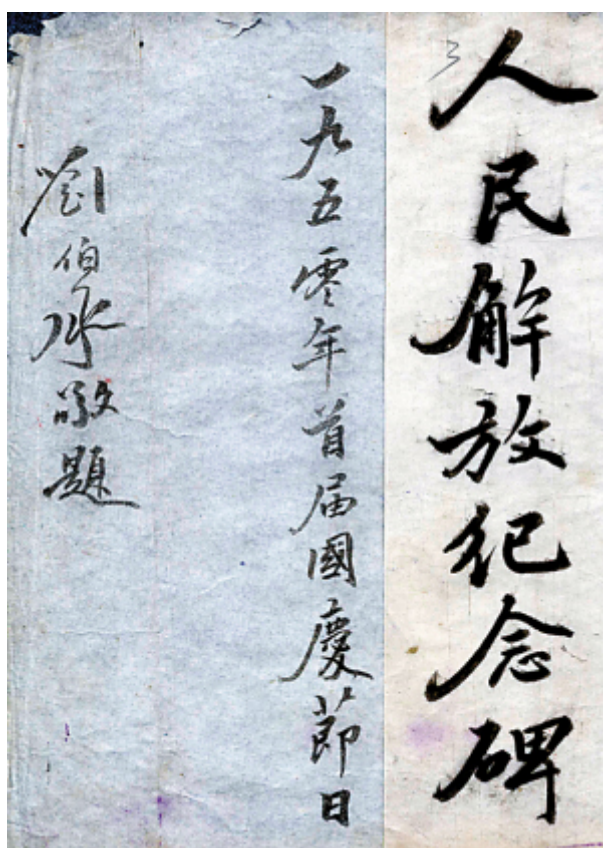 人民解放纪念碑
一九五零年首届國慶節日
劉伯承敬題